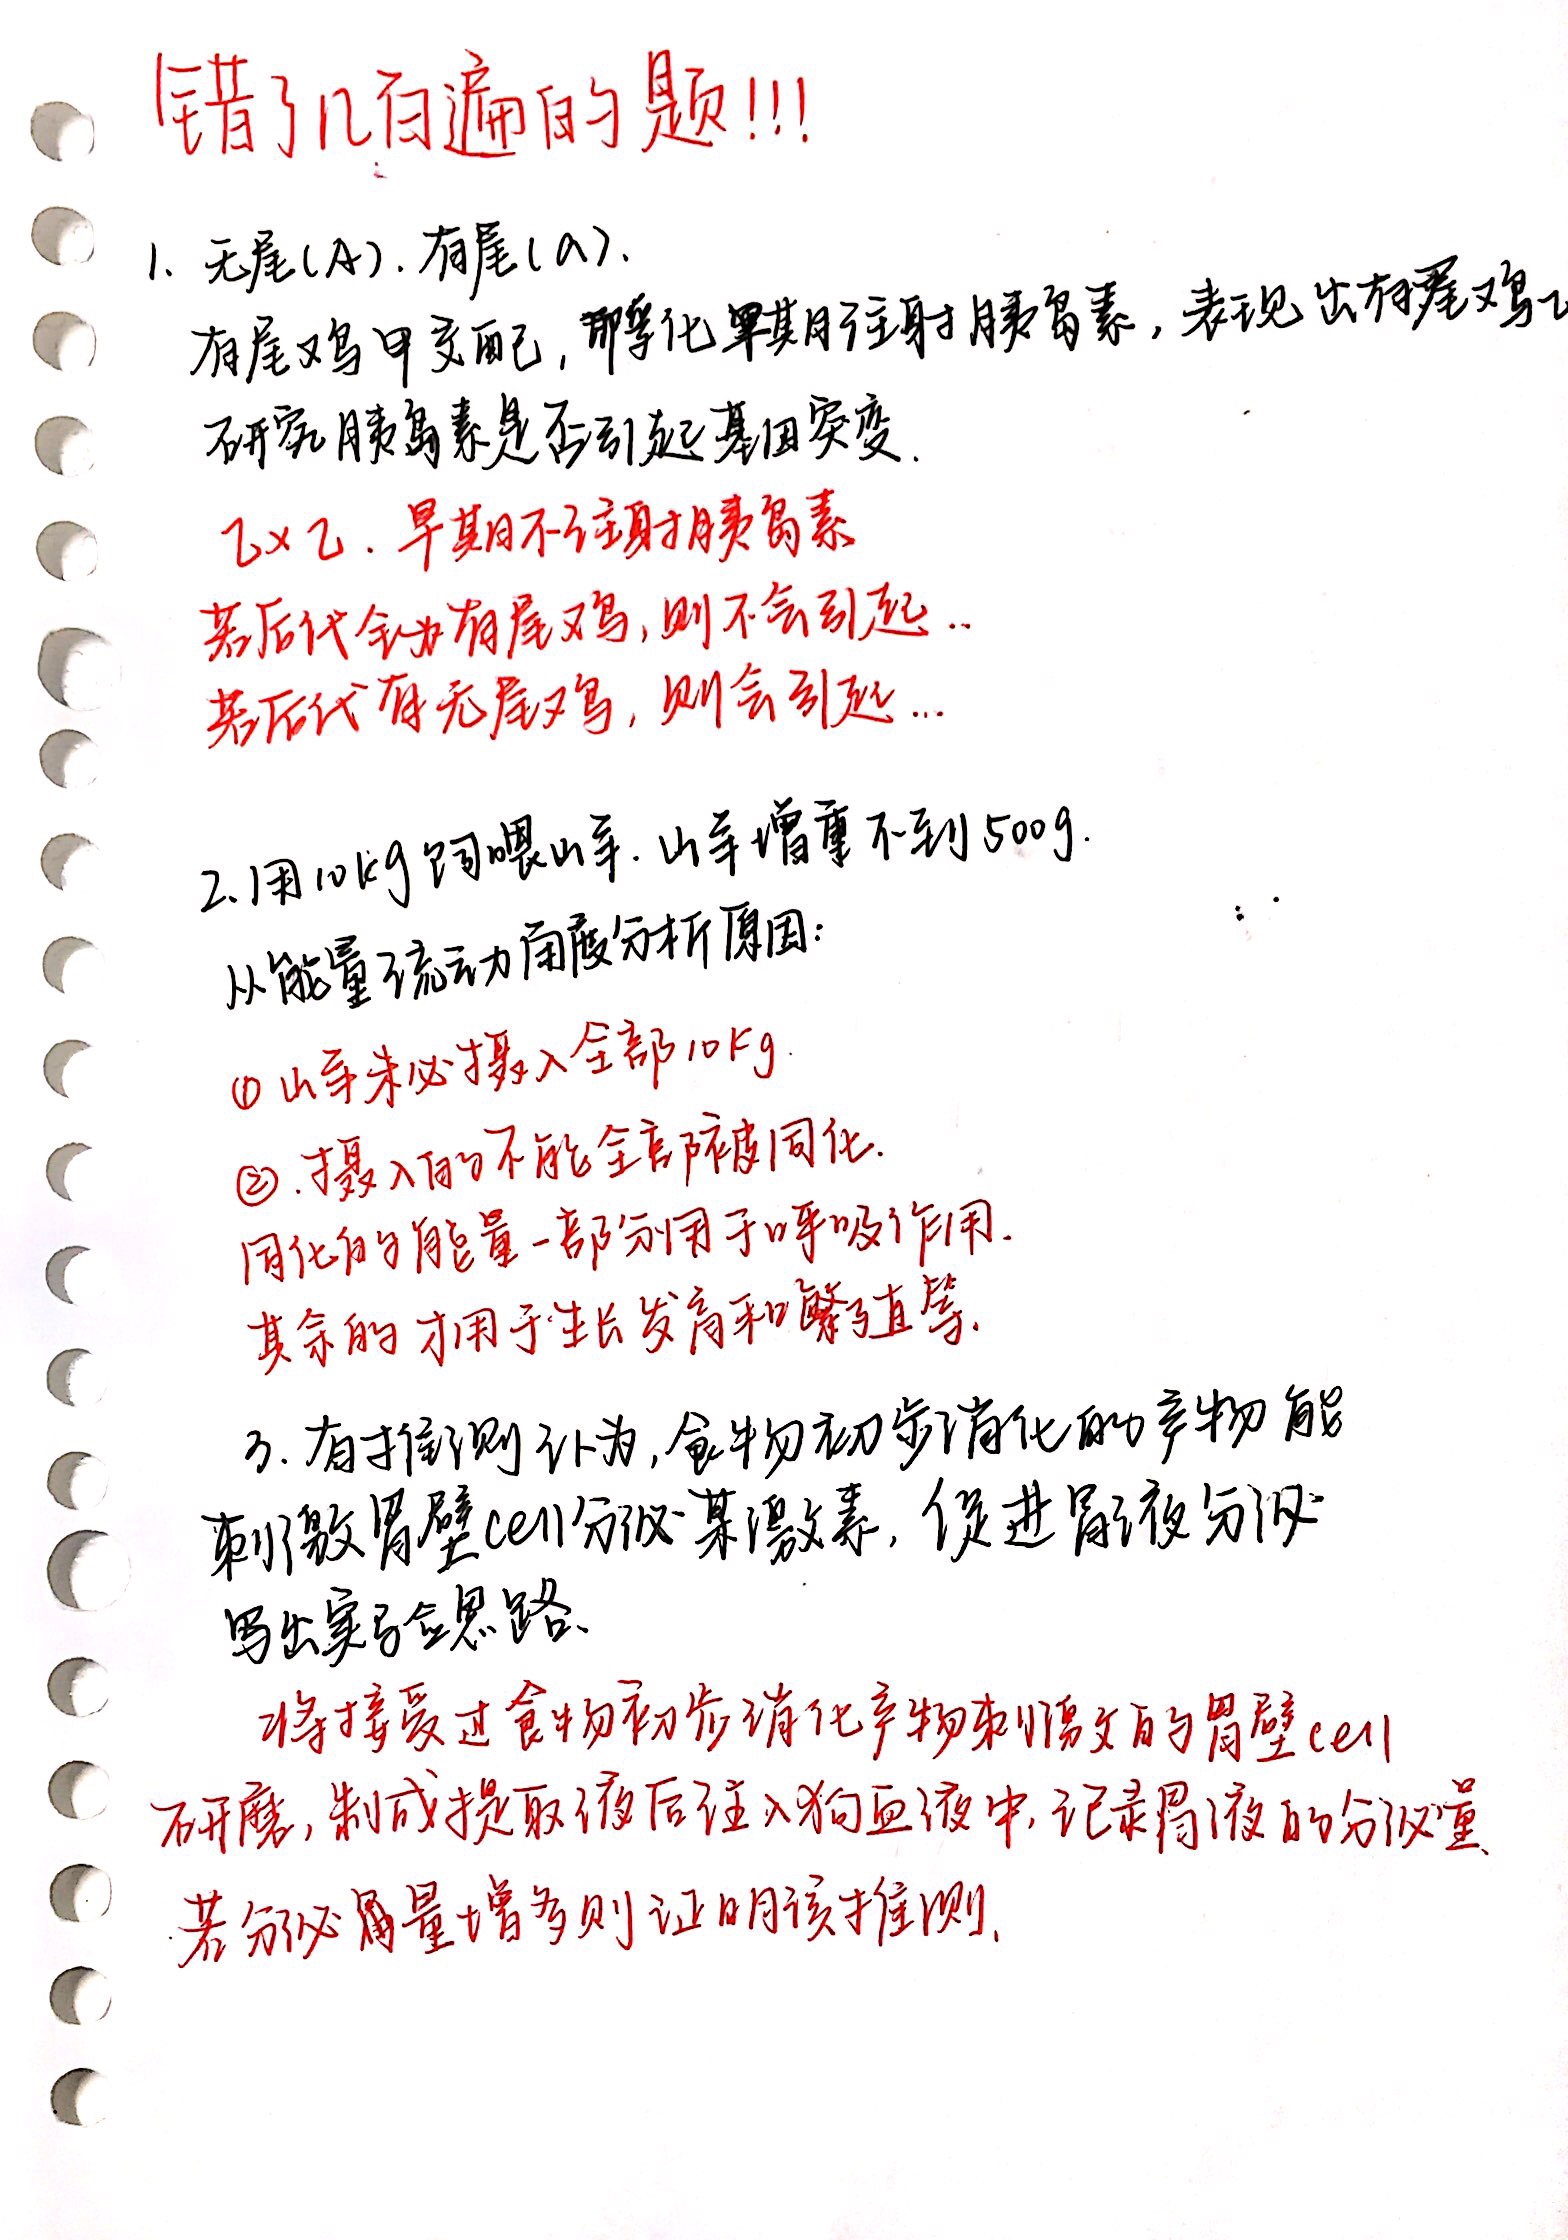 错了几百遍的题!!!
1. 无尾(A). 有尾(a).
有尾鸡甲交配, 孵化早期注射胰岛素, 表现出有尾鸡乙
研究胰岛素是否引起基因突变.
乙×乙. 早期不注射胰岛素
若后代全为有尾鸡, 则不会引起..
若后代有无尾鸡, 则会引起...
2. 用10kg饲喂山羊. 山羊增重不到500g.
从能量流动角度分析原因:
① 山羊未必摄入全部10kg.
②. 摄入的不能全部被同化.
同化的能量一部分用于呼吸作用.
其余的才用于生长发育和繁殖等.
3. 有推测认为, 食物初步消化的产物能
刺激胃壁cell分泌某激素, 促进胃液分泌
写出实验思路.
将接受过食物初步消化产物刺激的胃壁cell
研磨, 制成提取液后注入狗血液中, 记录胃液的分泌量.
若分泌量增多则证明该推测.